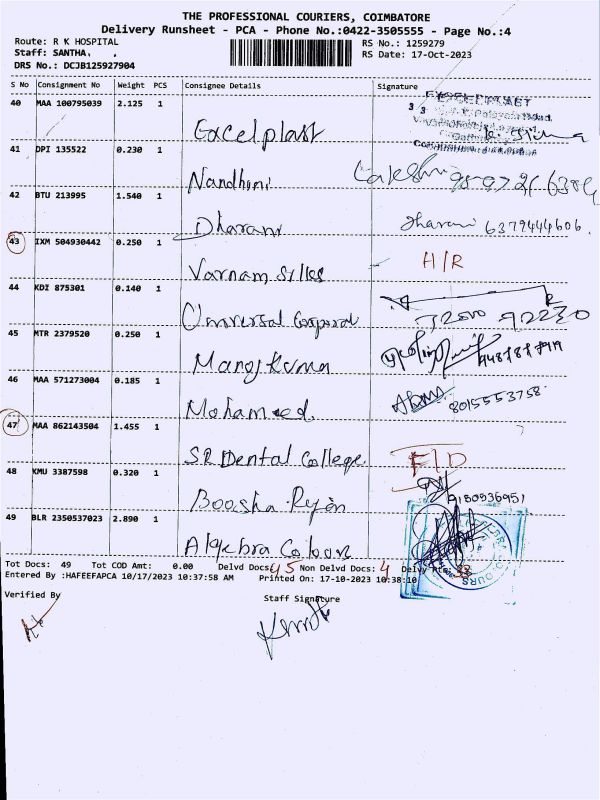 THE PROFESSIONAL COURIERS, COIMBATORE
Delivery Runsheet - PCA - Phone No.:0422-3505555 - Page No.:4
Route: R K HOSPITAL RS No.: 1259279
Staff: SANTHA, , RS Date: 17-Oct-2023
DRS No.: DCJB125927904
S No Consignment No Weight PCS Consignee Details Signature
40 MAA 100795039 2.125 1 EXCELPLAST
Excel plast
41 DPI 135522 0.230 1
Nandhini
42 BTU 213995 1.540 1
Dharani Dharani 6379444606.
43 IXM 504930442 0.250 1
Varnam silks H/R
44 KDI 875301 0.140 1
Universal Corporal
45 MTR 2379520 0.250 1
Manoj Kumar
46 MAA 571273004 0.185 1
Mohamed. 8015553758
47 MAA 862143504 1.455 1
SR Dental College F/D
48 KMU 3387598 0.320 1
9180936951
49 BLR 2350537023 2.890 1
Algebra Colour
Tot Docs: 49 Tot COD Amt: 0.00 Delvd Docs: 45 Non Delvd Docs: 4 Delvy
Entered By :HAFEEFAPCA 10/17/2023 10:37:58 AM Printed On: 17-10-2023 10:38:10
Verified By Staff Signature